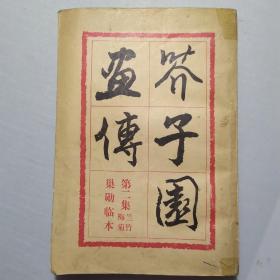 芥子園
畫傳
第二集 兰竹
梅菊
巢勋临本